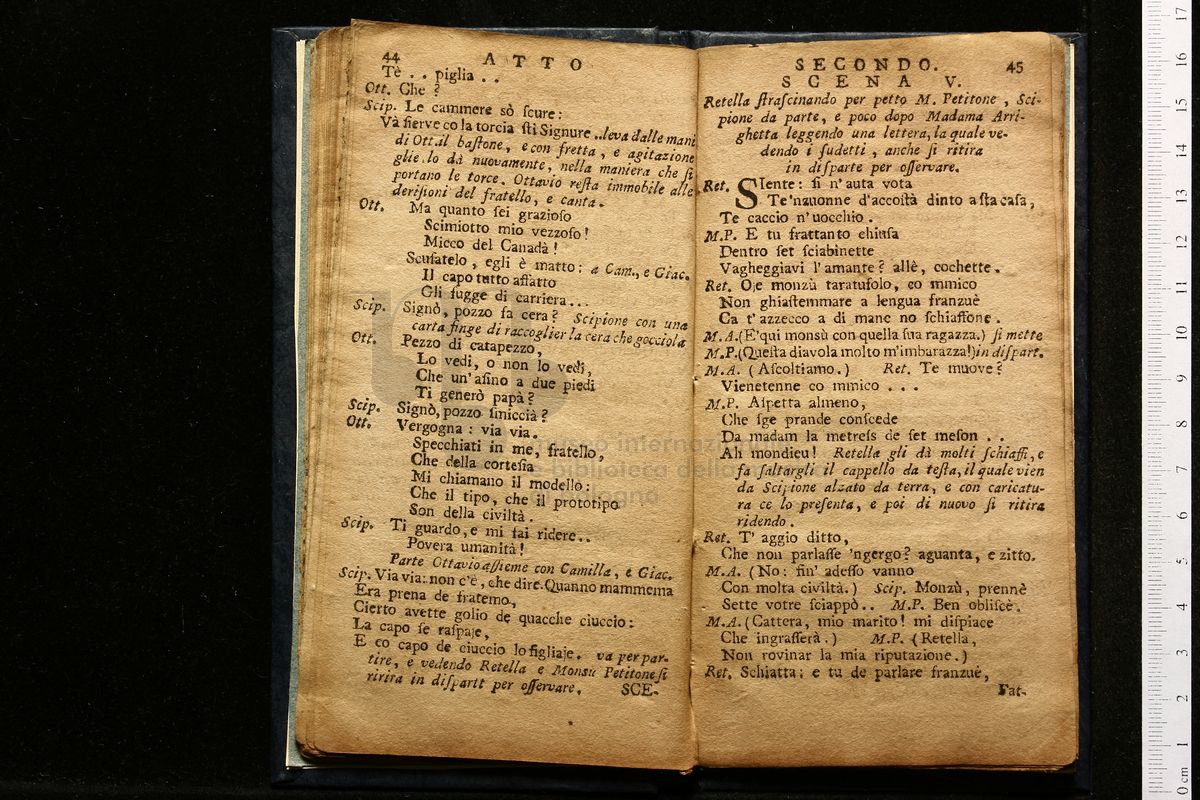 44 ATTO
Tè . . piglia . .
Ott. Che ?
Scip. Le cammere sò ſcure:
Và ſierve co la torcia ſti Signure .. leva dalle mani
di Ott. il baſtone, e con fretta, e agitazione
glie lo dà nuovamente, nella maniera che ſi
portano le torce. Ottavio reſta immobile alle
deriſioni del fratello, e canta.
Ott. Ma quanto ſei grazioſo
Scimiotto mio vezzoſo!
Micco del Canadà!
Scuſatelo, egli è matto: a Cam., e Giac.
Il capo tutto affatto
Gli fugge di carriera...
Scip. Signò, pozzo fa cera? Scipione con una
carta finge di raccoglier la cera che gocciola
Ott. Pezzo di catapezzo,
Lo vedi, o non lo vedi,
Che un'aſino a due piedi
Ti generò papà?
Scip. Signò, pozzo ſmiccià?
Ott. Vergogna: via via.
Specchiati in me, fratello,
Che della corteſia
Mi chiamano il modello:
Che il tipo, che il prototipo
Son della civiltà.
Scip. Ti guardo, e mi fai ridere..
Povera umanità!
Parte Ottavio aſſieme con Camilla, e Giac.
Scip. Via via: non c'è, che dire. Quanno mammema
Era prena de fratemo,
Cierto avette golio de quacche ciuccio:
La capo ſe raſpaje,
E co capo de ciuccio lo figliaje. va per par-
tire, e vedendo Retella e Monsù Petitone ſi
ririra in diſpartt per oſſervare. SCE-
SECONDO. 45
SCENA V.
Retella ſtraſcinando per petto M. Petitone, Sci-
pione da parte, e poco dopo Madama Arri-
ghetta leggendo una lettera, la quale ve-
dendo i ſudetti, anche ſi ritira
in diſparte per oſſervare.
Ret. SIente: ſi n'auta vota
Te'nzuonne d'accoſtà dinto a ſta caſa,
Te caccio n'uocchio.
M.P. E tu frattanto chiuſa
Dentro ſet ſciabinette
Vagheggiavi l'amante? allè, cochette.
Ret. Oje monzù taratufolo, co mmico
Non ghiaſtemmare a lengua franzuè
Ca t'azzecco a di mane no ſchiaffone.
M.A. (E'qui monsù con quella ſua ragazza.) ſi mette
M.P. (Queſta diavola molto m'imbarazza!) in diſpart.
M.A. (Aſcoltiamo.) Ret. Te muove?
Vienetenne co mmico ...
M.P. Aſpetta almeno,
Che ſge prande conſcede
Da madam la metreſs de ſet meſon ..
Ah mondieu! Retella gli dà molti ſchiaffi, e
fa ſaltargli il cappello da teſta, il quale vien
da Scipione alzato da terra, e con caricatu-
ra ce lo preſenta, e poi di nuovo ſi ritira
ridendo.
Ret. T'aggio ditto,
Che non parlaſſe 'ngergo? aguanta, e zitto.
M.A. (No: fin'adeſſo vanno
Con molta civiltà.) Scip. Monzù, prennè
Sette votre ſciappò.. M.P. Ben obliſcè.
M.A. (Cattera, mio marito! mi diſpiace
Che ingraſſerà.) M.P. (Retella,
Non rovinar la mia riputazione.)
Ret. Schiatta: e tu de parlare franzuè,
Fat-